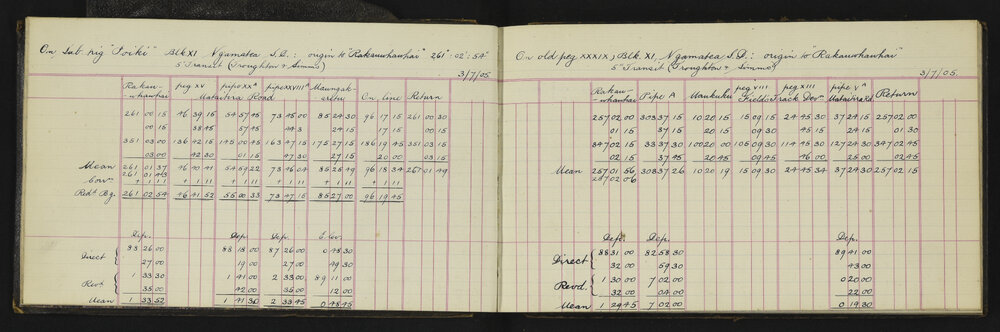 On sub. pig "Toiki" Blk XI Ngamatea S.D.: origin to "Rakauwhawhai" 261° : 02' : 54"
5" Transit (Troughton & Simms)
3/7/05
Rakau- whawhai peg XV pipe XXᴬ pipe XXVIIIᴬ Maungak- aretu On line Return
Mataihua Road
261 00 15 46 39 15 54 57 45 73 45 00 85 24 30 96 17 15 261 00 30
00 15 38 45 57 45 44 3 24 15 17 15 00 15
351 03 00 136 42 15 145 00 45 163 47 15 175 27 15 186 19 45 351 03 15
03 00 42 30 01 15 47 30 27 15 20 00 03 15
Mean 261 01 37 46 40 41 54 59 22 73 46 04 85 25 49 96 18 34 261 01 49
261 01 43
Corrⁿ + 1 11 + 1 11 + 1 11 + 1 11 + 1 11 + 1 11
Redᵈ Bg. 261 02 54 46 41 52 55 00 33 73 47 15 85 27 00 96 19 45
Dep. Dep. Dep. Elev.
Direct 88 26 00 88 18 00 87 26 00 0 48 30
27 00 19 00 27 00 49 30
Revᵈ 1 33 30 1 41 00 2 33 00 89 11 00
35 00 42 00 35 00 12 00
Mean 1 33 52 1 41 30 2 33 45 0 48 45
On old peg XXXIX, Blk. XI, Ngamatea S.D.: origin to "Rakauwhawhai"
5" Transit (Troughton & Simms)
3/7/05.
Rakau- whawhai Pipe A Maukuku peg VIII peg XIII pipe Vᴬ Return
Fields Track Devⁿ
257 02 00 308 37 15 10 20 15 15 09 15 24 45 30 37 24 15 257 02 00
01 15 37 15 20 15 09 30 45 15 24 15 01 30
347 02 15 38 37 30 100 20 00 105 09 30 114 45 30 127 24 30 347 02 45
02 15 37 45 20 45 09 45 46 00 25 00 02 45
Mean 257 01 56 308 37 26 10 20 19 15 09 30 24 45 34 37 24 30 257 02 15
257 02 06
Dep. Dep. Dep.
Direct 88 31 00 82 58 30 89 41 00
32 00 59 30 43 00
Revd. 1 30 00 7 02 00 0 20 00
32 00 04 00 22 00
Mean 1 29 45 7 02 00 0 19 30